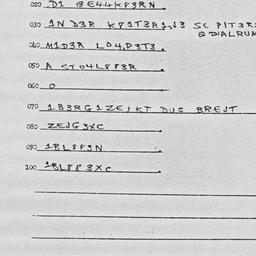 020 D1 BE44K83RN
030 1N D3R K81T3R1,13 SC PIT3R:
@ DIALRUM
040 M1D3R LO4,P3T3.
050 A STO4L8F3R
060 O
070 1B3RG1ZEIKT DUS BREIT
080 ZEJG3XC
090 1BL889N
100 1BL883XC